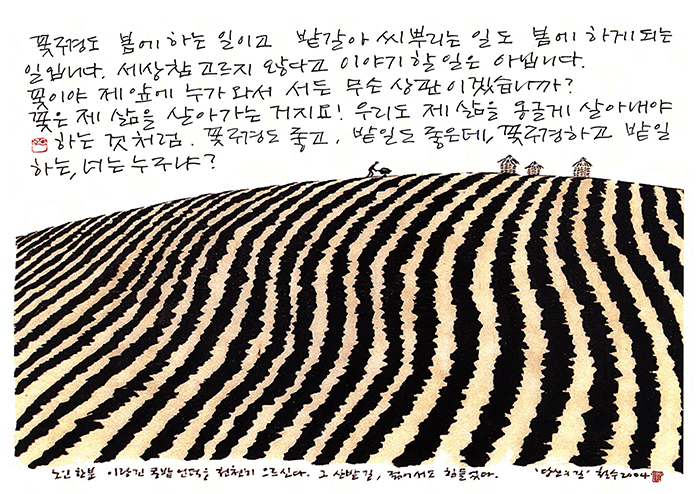 꽃구경도 봄에 하는 일이고 밭갈아 씨뿌리는 일도 봄에 하게되는
일입니다. 세상 참 고르지 않다고 이야기할 일은 아닙니다.
꽃이야 제 앞에 누가 와서 서든 무슨 상관이겠습니까?
꽃은 제 삶을 살아가는 거지요! 우리도 제 삶을 둥글게 살아내야
하는 것처럼. 꽃구경도 좋고, 밭일도 좋은데, 꽃구경하고 밭일
하는, 너는 누구냐?
노인 한분 이랑긴 콩밭 언덕을 천천히 오르신다. 그 산밭길, 젊어서도 힘들었다. '당신의 길' 철수 2004